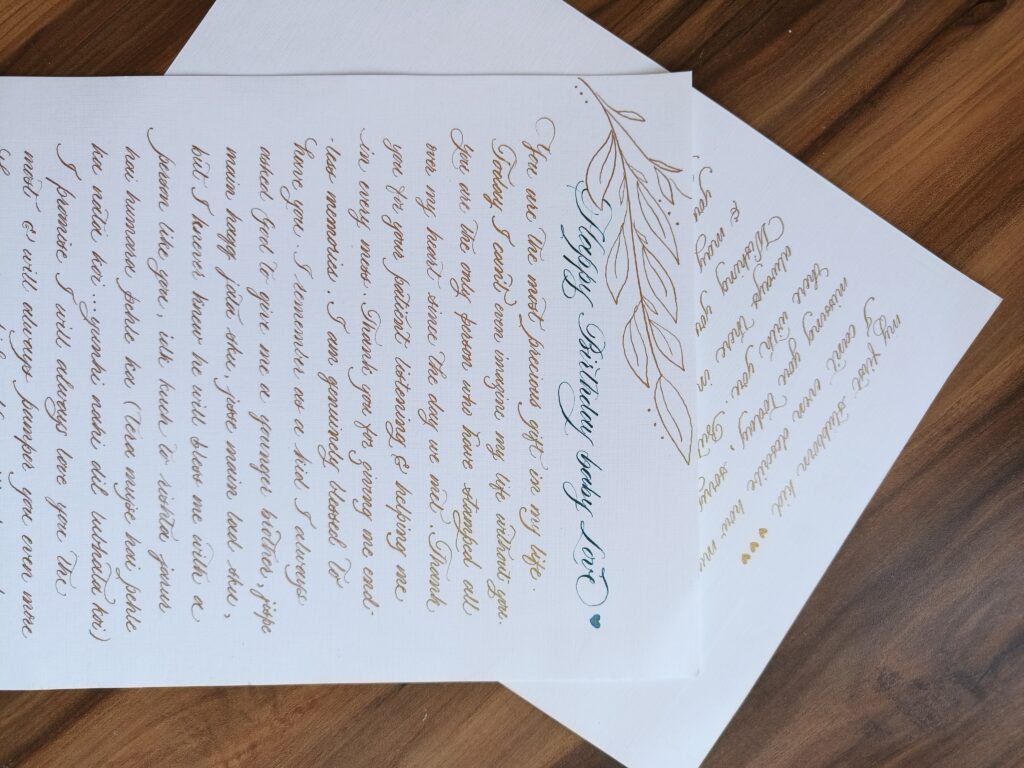 Happy Birthday baby Love ♥
You are the most precious gift in my life.
Today, I can't even imagine my life without you.
You are the only person who have stamped all
over my heart since the day we met. Thank
you for your patient listening & helping me
in every mess. Thank you for giving me end-
-less memories. I am genuinly blessed to
have you. I remember as a kid I always
asked God to give me a younger brother, jispe
main haqq jata sku, jisse main lad sku,
but I never knew he will bless me with a
person like you, to rishta
hai humara pehle ka (Tera mujse hai pehle
ka nata koi.. yunhi nadi dil lubhata koi)
I promise I will always love you the
most & will always pamper you even more
my first Stubborn kid ♥♥♥
I can't even describe how mu
missing you today,
there with you. But
always there in
Wishing you
& may
you